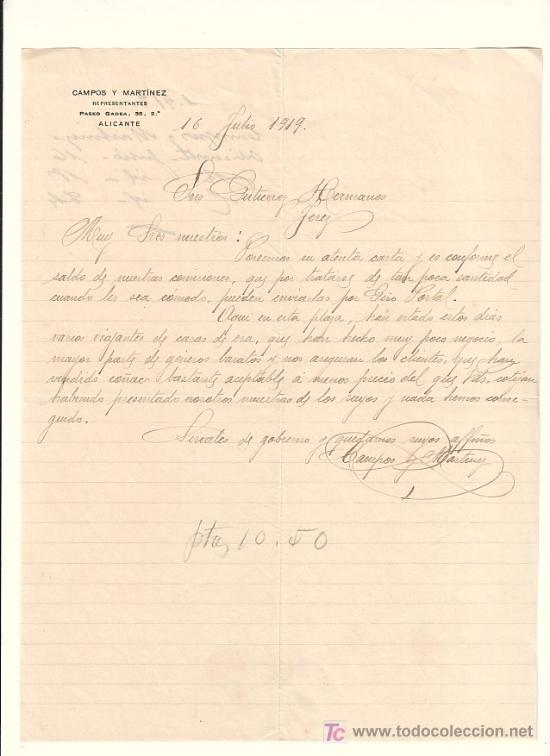 CAMPOS Y MARTÍNEZ
REPRESENTANTES
PASEO GADEA, 38, 2.º
ALICANTE
16 Julio 1919.
Sres Gutierrez Hermanos
Jerez
Muy Sres nuestros:
Poseemos su atenta carta y es conforme el
saldo de nuestras comisiones, que por tratarse de tan poca cantidad
cuando les sea comodo, pueden enviarlas por Giro Postal.
Aqui en esta plaza, han estado estos dias
varios viajantes de casas de esa, que han hecho muy poco negocio, la
mayor parte de géneros baratos y nos aseguran los clientes, que han
vendido coñac bastante aceptable á menos precio del que Vds. cotizan
habiendo presentado nosotros muestras de los suyos y nada hemos conse-
guido.
Sirvales de gobierno y quedamos suyos affmos
Campos y Martinez
ptas 10.50
TC www.todocoleccion.net